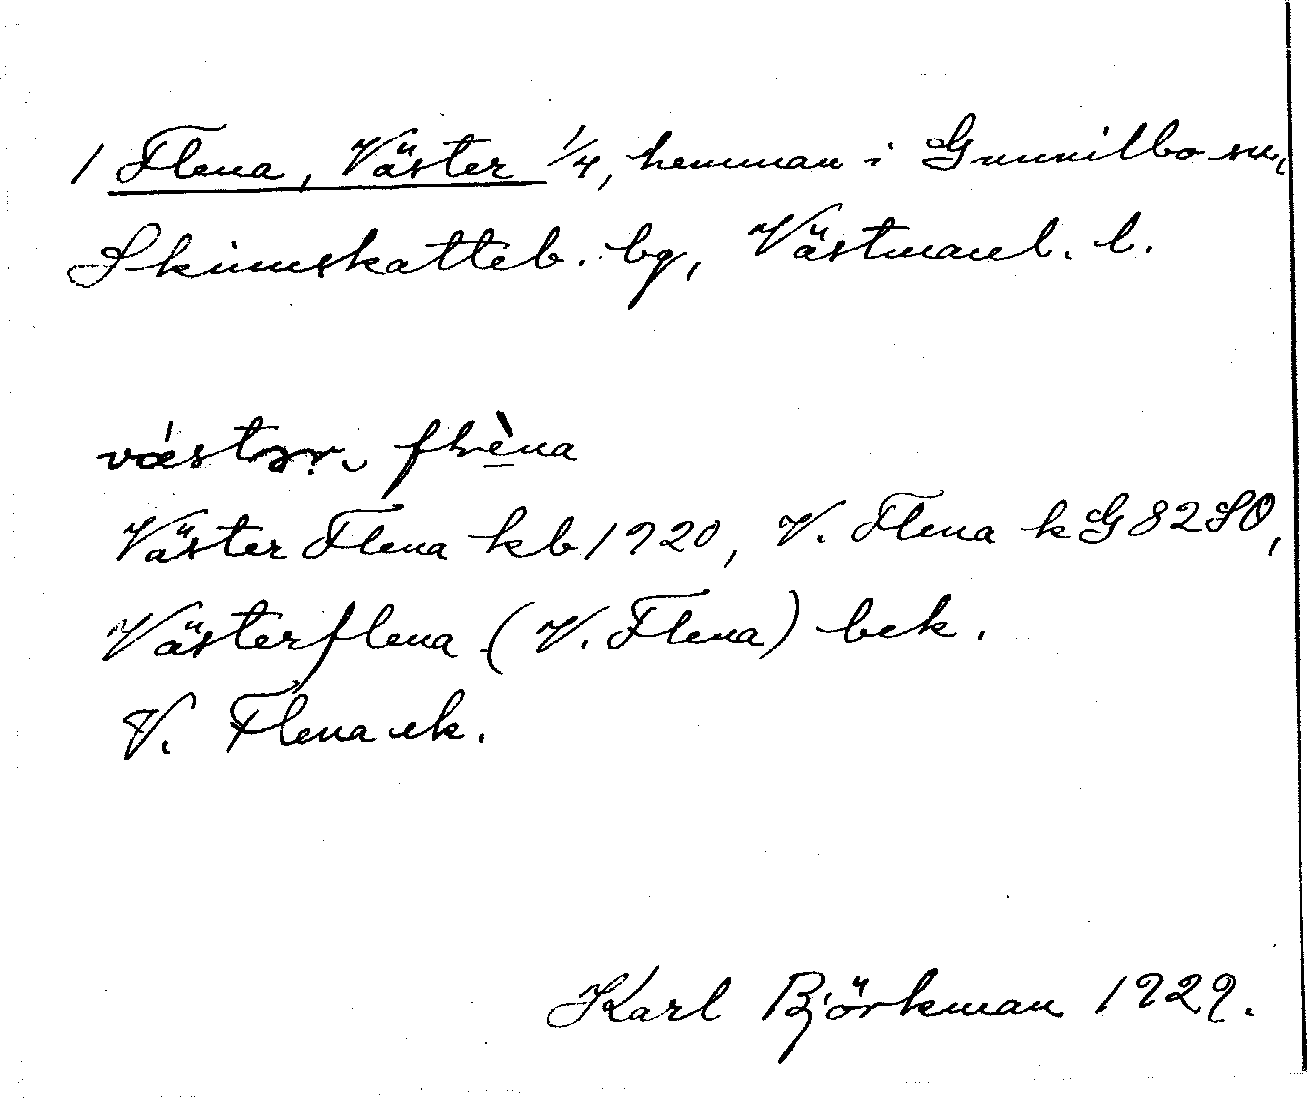 1 Flena, Väster 1/4, hemman i Gunnilbo sn,
Skinnskatteb. bg, Västmanl. l.
Väster Flena kb 1920, V. Flena kG 82 SO,
Västerflena (V. Flena) bek.
V. Flena ek.
Karl Björkman 1929.